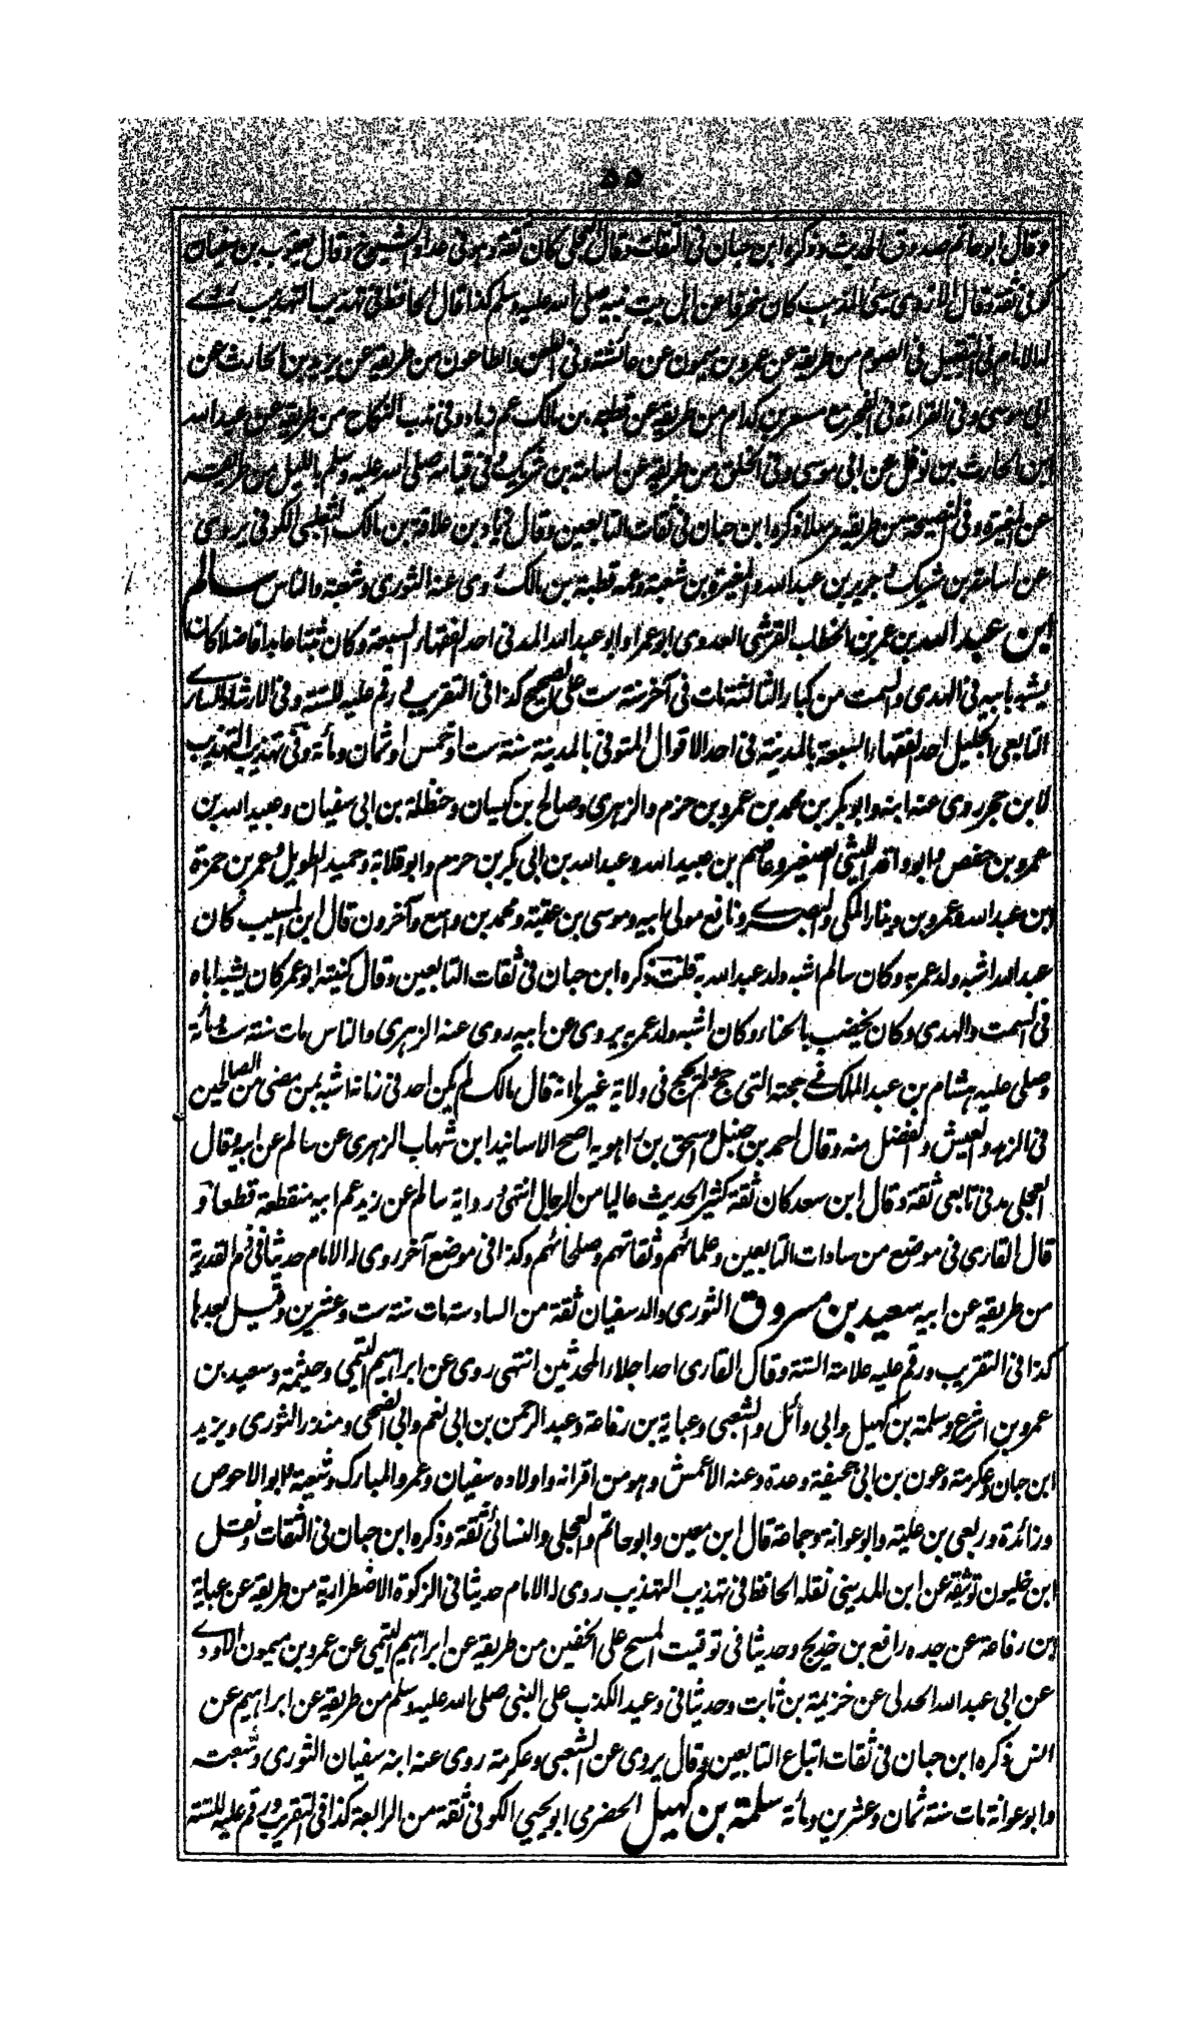 ٥٥
وقال ابو حاتم صدوق الحديث وذكره ابن حبان فى الثقات وقال العجلى كان ثقة وهو فى عداد الشيوخ وقال يعقوب بن سفيان
كوفى ثقة وقال الازدى سيئ المذهب كان منحرفا عن اهل بيت نبيه صلى الله عليه وسلم كذا قال الحافظ فى تهذيب التهذيب روى
له الامام فى التقبيل فى الصوم من طريقه عن عمرو بن ميمون عن عائشة وفى الطعن والطاعون من طريقه عن يزيد بن الحارث عن
ابى موسى وفى القراءة فى الفجر مع مسعر بن كدام من طريقه عن قطبة بن مالك عم زياد وفى ندب النكاح من طريقه عن عبد الله
ابن الحارث بن نوفل عن ابى موسى وفى الخلق من طريقه عن اسامة بن شريك وفى قيامه صلى الله عليه وسلم بالليل من طريقه
عن المغيرة وفى النصيحة من طريقه مرسلا ذكره ابن حبان فى ثقات التابعين وقال زياد بن علاقة بن مالك الثعلبى الكوفى يروى
عن اسامة بن شريك وجرير بن عبد الله والمغيرة بن شعبة وعمه قطبة بن مالك روى عنه الثورى وشعبة والناس سالم
ابن عبد الله بن عمر بن الخطاب القرشى العدوى ابو عمر او ابو عبد الله المدنى احد الفقهاء السبعة وكان ثبتا عابدا فاضلا كان
يشبه بابيه فى الهدى والسمت من كبار الثالثة مات فى آخر سنة ست على الصحيح كذا فى التقريب ورقم عليه للستة وفى الارشاد السارى
التابعى الجليل احد الفقهاء السبعة بالمدينة فى احد الاقوال المتوفى بالمدينة سنة ست او خمس او ثمان ومأة وفى تهذيب التهذيب
لابن حجر روى عنه ابنه وابو بكر بن محمد بن عمرو بن حزم والزهرى وصالح بن كيسان وحنظلة بن ابى سفيان وعبيد الله بن
عمرو بن حفص وابو واقد الليثى الصغير وعاصم بن عبيد الله وعبد الله بن ابى بكر بن حزم وابو قلابة وحميد الطويل وعمر بن حمزة
ابن عبد الله وعمرو بن دينار المكى والبصرى ونافع مولى ابيه وموسى بن عقبة ومحمد بن واسع وآخرون قال ابن المسيب كان
عبد الله اشبه ولد عمر به وكان سالم اشبه ولد عبد الله به قلت ذكره ابن حبان فى ثقات التابعين وقال كنيته ابو عمر كان يشبه اباه
فى السمت والهدى وكان يخضب بالحناء وكان اشبه ولد عمر به يروى عن ابيه روى عنه الزهرى والناس مات سنة ست ومأة
وصلى عليه هشام بن عبد الملك فى حجته التى حج لم يحج فى ولاية غيرها قال مالك لم يكن احد فى زمانه اشبه بمن مضى من الصالحين
فى الزهد والعيش والفضل منه وقال احمد بن حنبل واسحق بن راهويه اصح الاسانيد ابن شهاب الزهرى عن سالم عن ابيه وقال
العجلى مدنى تابعى ثقة وقال ابن سعد كان ثقة كثير الحديث عاليا من الرجال انتهى ورواية سالم عن زيد عم ابيه منقطعة قطعا و
قال القارى فى موضع من سادات التابعين وعلمائهم وثقاتهم وصلحائهم وكذا فى موضع آخر روى له الامام حديثا فى ذم القدرية
من طريقه عن ابيه سعيد بن مسروق الثورى والد سفيان ثقة من السادسة مات سنة ست وعشرين وقيل بعدها
كذا فى التقريب ورقم عليه علامة الستة وقال القارى احد اجلاء المحدثين انتهى روى عن ابراهيم التيمى وخيثمة وسعيد بن
عمرو بن اشوع وسلمة بن كهيل وابى وائل والشعبى وعباية بن رفاعة وعبد الرحمن بن ابى نعم وابى الضحى ومنذر الثورى ويزيد
ابن حبان وعكرمة وعون بن ابى جحيفة وعدة وعنه الاعمش وهو من اقرانه واولاده سفيان وعمر والمبارك وشعبة وابو الاحوص
وزائدة وربعى بن علية وابو عوانة وجماعة قال ابن معين وابو حاتم والعجلى والنسائى ثقة وذكره ابن حبان فى الثقات ونقل
ابن خلفون توثيقه عن ابن المدينى نقله الحافظ فى تهذيب التهذيب روى له الامام حديثا فى الزكوة الاضطرارية من طريقه عن عباية
ابن رفاعة عن جده رافع بن خديج وحديثا فى توقيت المسح على الخفين من طريقه عن ابراهيم التيمى عن عمرو بن ميمون الاودى
عن ابى عبد الله الجدلى عن خزيمة بن ثابت وحديثا فى وعيد الكذب على النبى صلى الله عليه وسلم من طريقه عن ابراهيم عن
انس ذكره ابن حبان فى ثقات اتباع التابعين وقال يروى عن الشعبى وعكرمة روى عنه ابنه سفيان الثورى وشعبة
وابو عوانة مات سنة ثمان وعشرين ومأة سلمة بن كهيل الحضرمى ابو يحيى الكوفى ثقة من الرابعة كذا فى التقريب ورقم عليه للستة